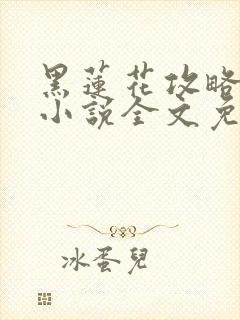 黑蓮花攻略
小說全文免
冰蛋兒